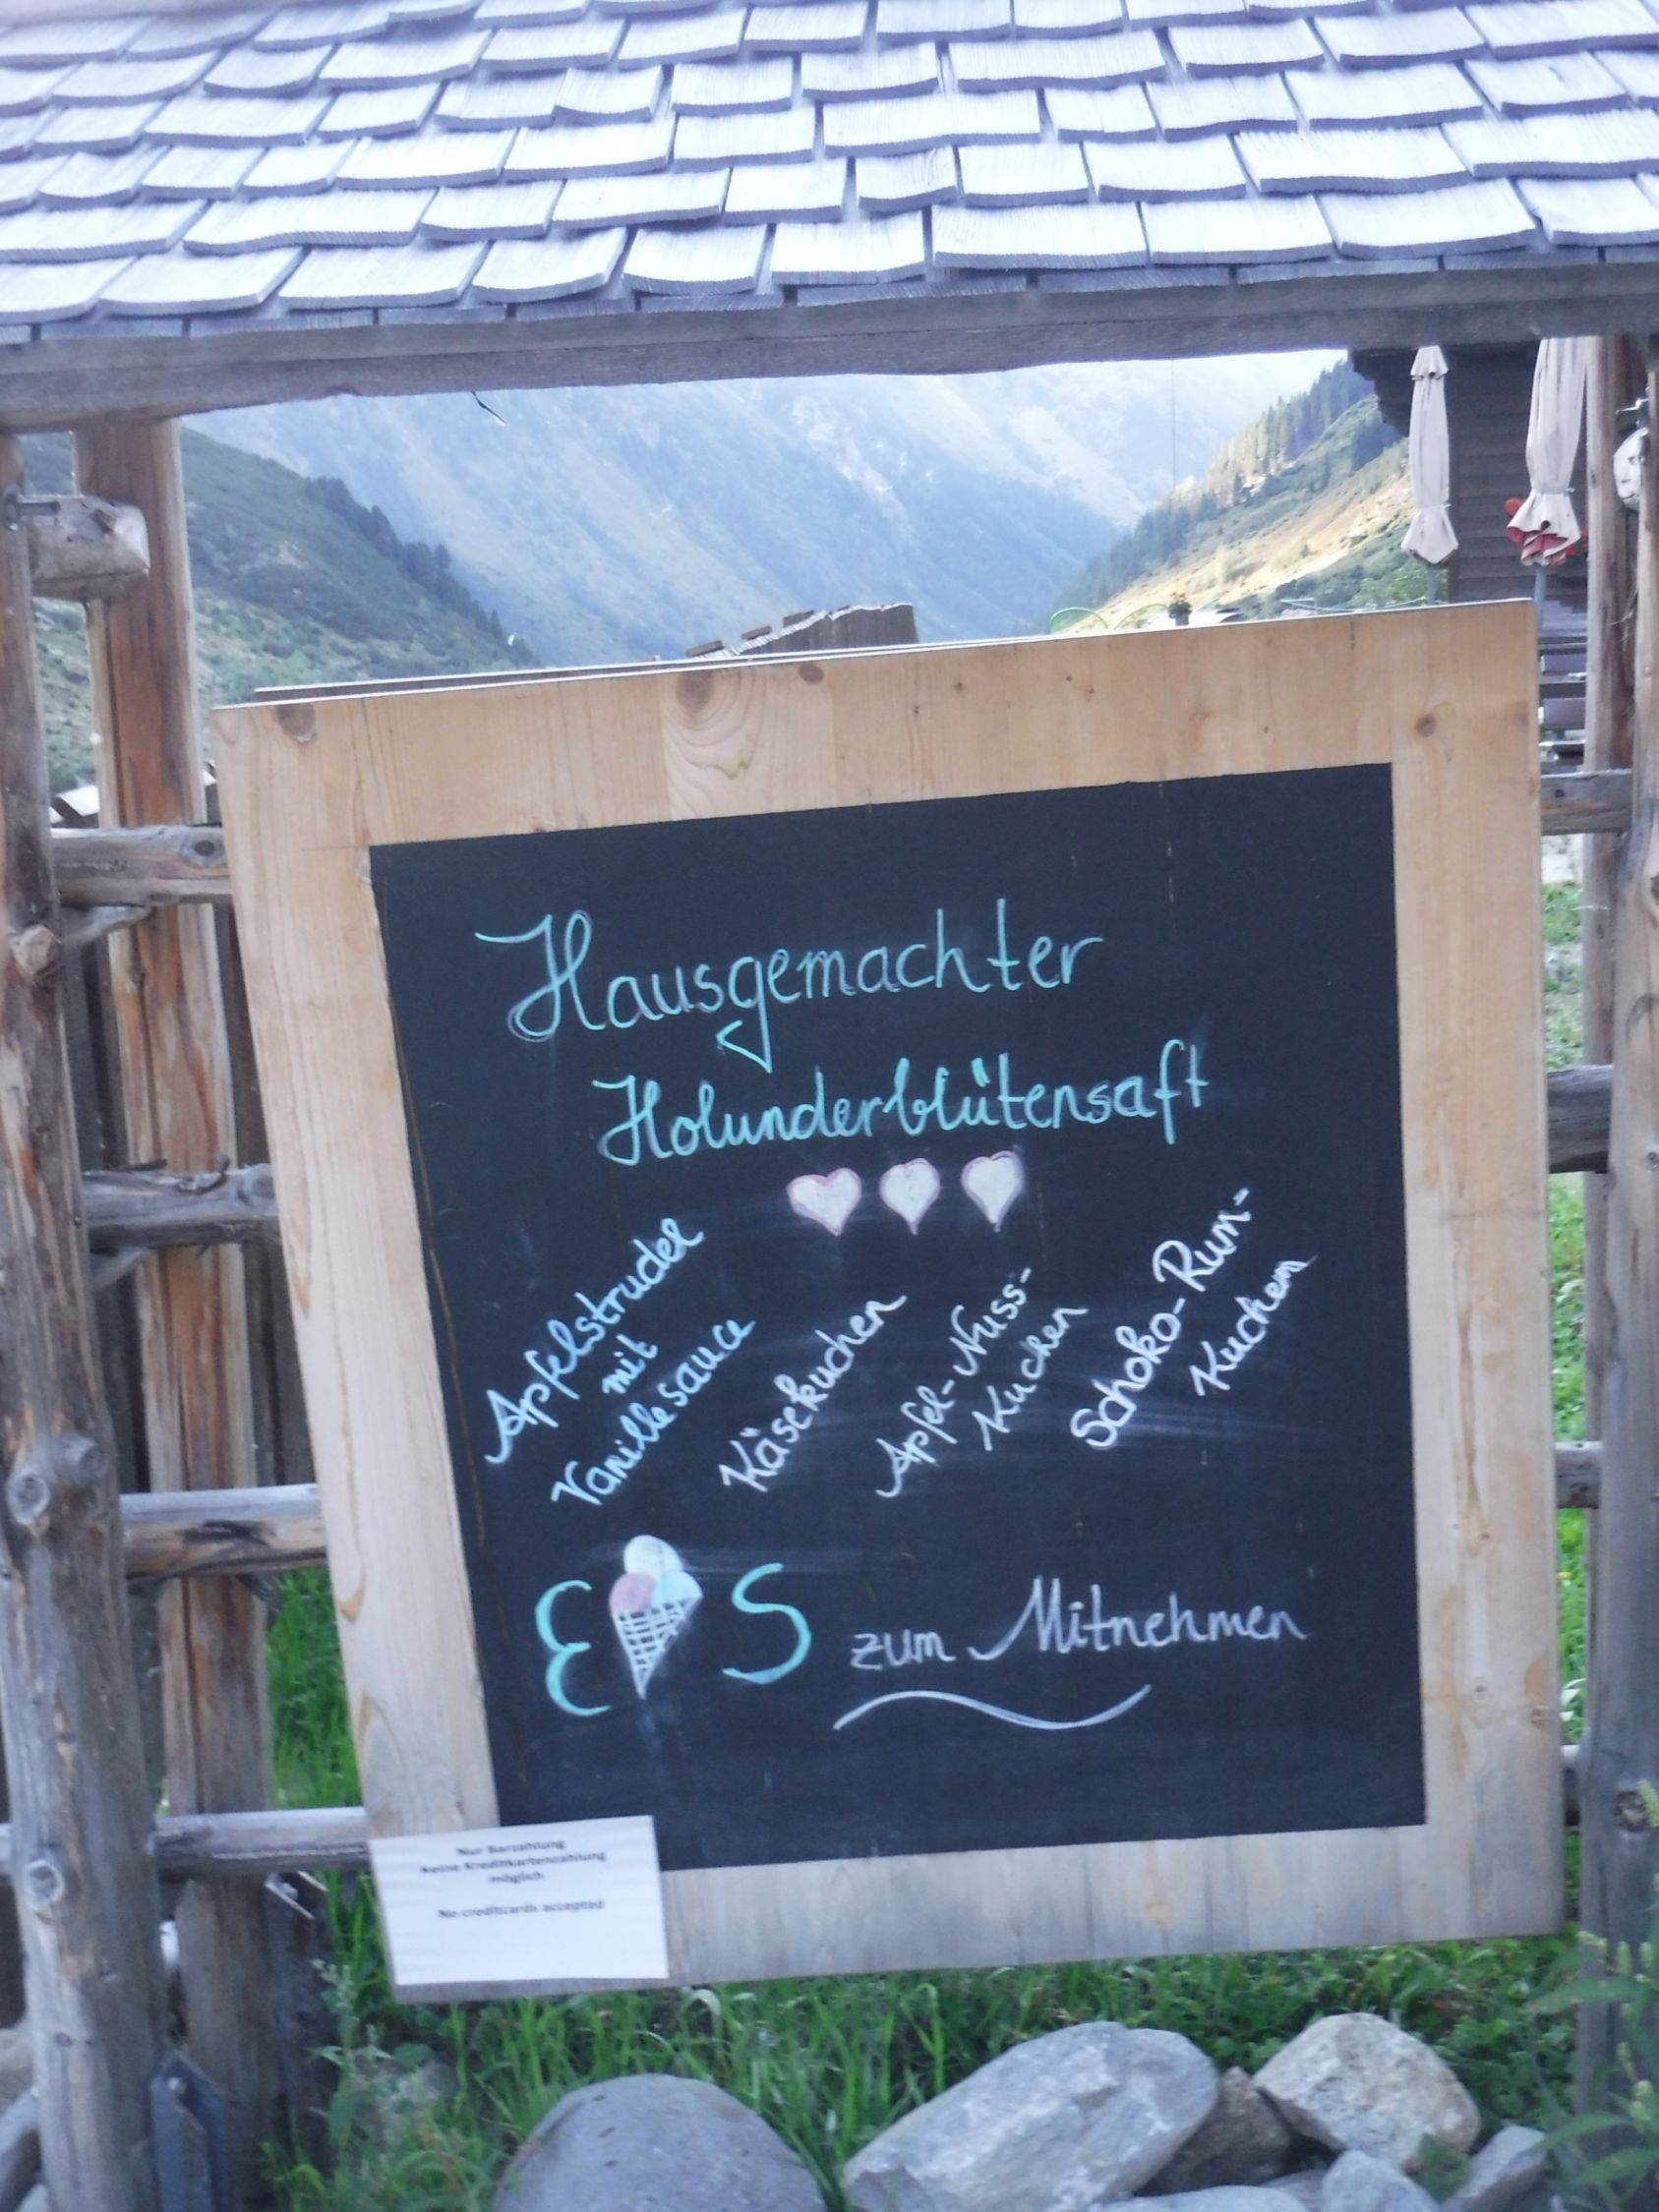 Hausgemachter
Holunderblütensaft
Apfelstrudel
mit
Vanillesauce
Käsekuchen
Apfel-Nuss-
Kuchen
Schoko-Rum-
Kuchen
E S zum Mitnehmen
Nur Barzahlung
Keine Kreditkartenzahlung
möglich
No creditcards accepted